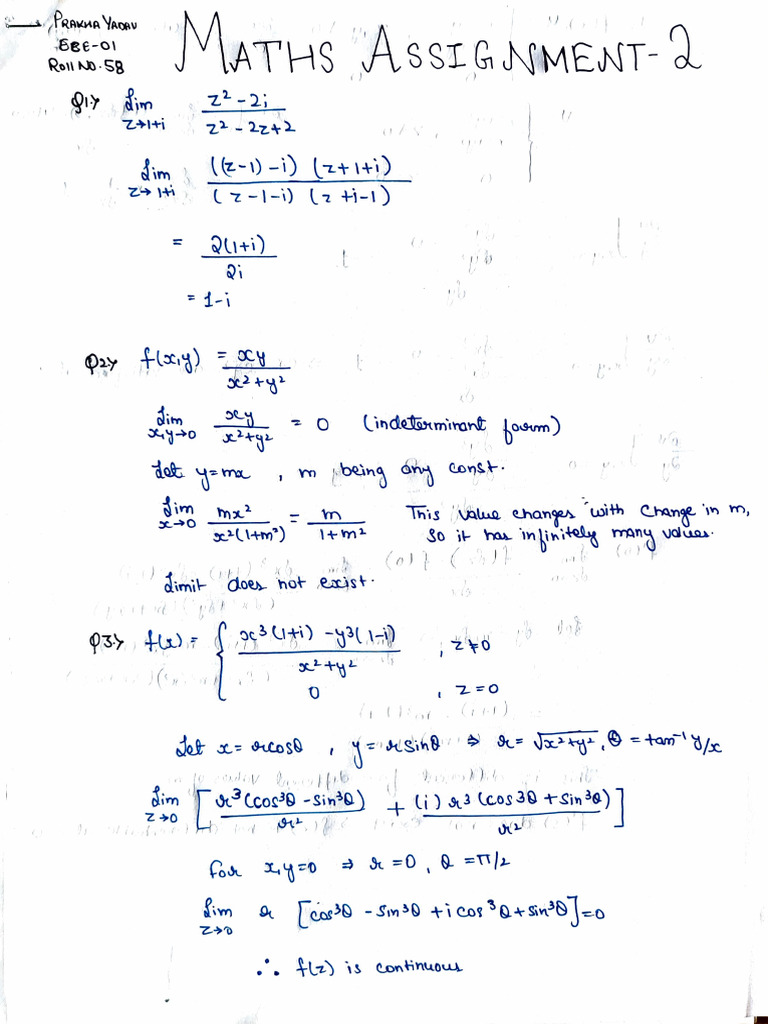 PRAKHA YADAV
EBE-01
Roll NO.58
MATHS ASSIGNMENT-2
Q1> Lim z→1+i z² - 2i / z² - 2z+2
Lim z→1+i ((z-1)-i) (z+1+i) / (z-1-i) (z+i-1)
= 2(1+i) / 2i
= 1-i
Q2> f(x,y) = xy / x²+y²
Lim x,y→0 xy / x²+y² = 0 (indeterminant form)
Let y=mx , m being any const.
Lim x→0 mx² / x²(1+m²) = m / 1+m² This value changes with change in m,
So it has infinitely many values.
Limit does not exist.
Q3> f(x) = { x³(1+i) - y³(1-i) / x²+y² , z≠0
0 , z=0
Let x= rcosθ , y= rsinθ ⇒ r= √x²+y² , θ = tan⁻¹ y/x
Lim z→0 [ r³(cos³θ - sin³θ) / r² + (i) r³ (cos3θ + sin³θ) / r² ]
For x,y=0 ⇒ r=0 , θ = π/2
Lim z→0 r [cos³θ - sin³θ + i cos³θ + sin³θ] = 0
∴ f(z) is continuous